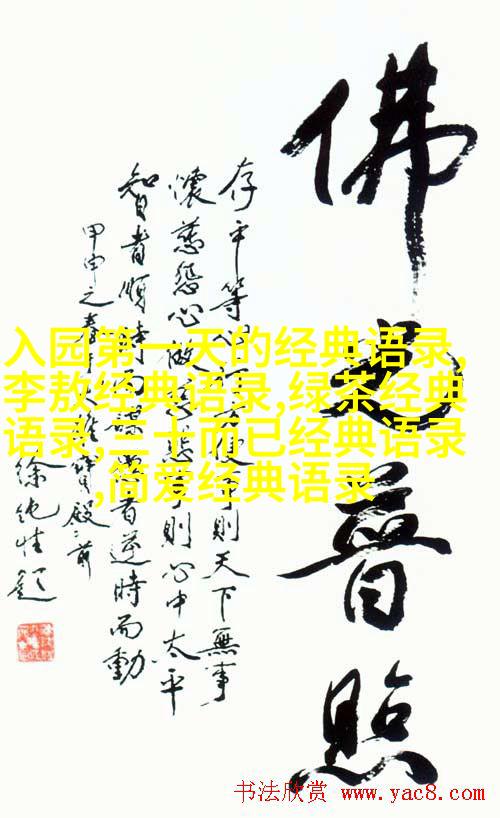 佛光普照
存平等心行方便事則天下無事
懷慈悲心做慈悲事則心中太平
智者順時而謀愚者逆時而動
甲申之春
寶殿之前
徐純性題
入园第一天的经典语录,
李敖经典语录,绿茶经典
语录,三十而已经典语录
,简爱经典语录
书法欣赏 www.yac8.com